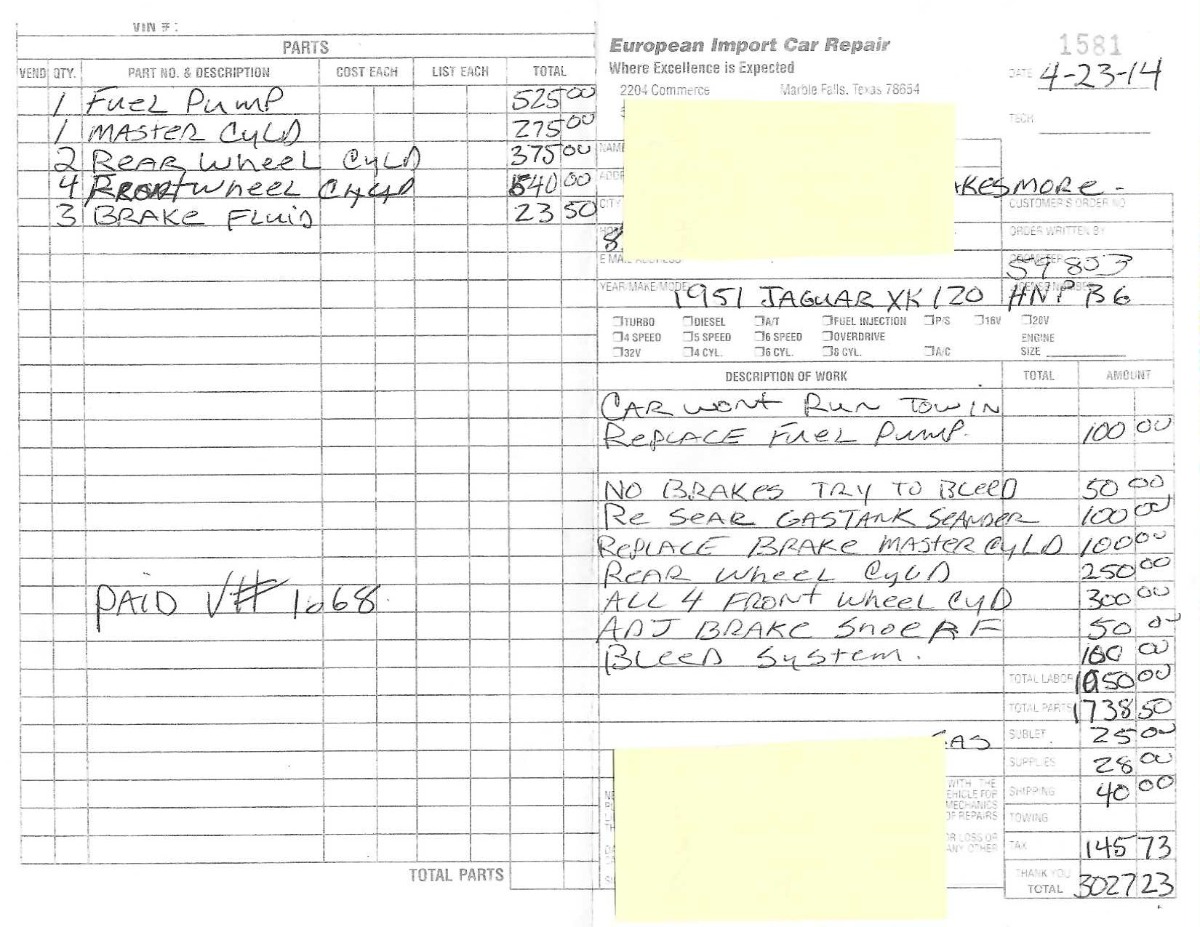 VIN #:
PARTS
VEND QTY. PART NO. & DESCRIPTION COST EACH LIST EACH TOTAL
1 Fuel Pump 525 00
1 Master Cyld 275 00
2 Rear Wheel Cyld 375 00
4 Front Wheel Cyld 540 00
3 Brake Fluid 23 50
PAID √# 1068
TOTAL PARTS
European Import Car Repair
1581
Where Excellence is Expected
DATE 4-23-14
2204 Commerce Marble Falls, Texas 78654
TECH
NAME
ADDR
AKESMORE -
CITY
CUSTOMER'S ORDER NO.
8
ORDER WRITTEN BY
E MAIL ADDRESS
59853
YEAR/MAKE/MODEL 1951 JAGUAR XK 120 HNP B6
TURBO DIESEL A/T FUEL INJECTION P/S 16V 20V
4 SPEED 5 SPEED 6 SPEED OVERDRIVE ENGINE
32V 4 CYL. 6 CYL. 8 CYL. A/C SIZE
DESCRIPTION OF WORK TOTAL AMOUNT
Car wont Run Tow in
Replace Fuel Pump. 100 00
No Brakes Try to Bleed 50 00
Re Sear Gastank Seander 100 00
Replace Brake Master Cyld 100 00
Rear Wheel Cyld 250 00
All 4 Front Wheel Cyd 300 00
Adj Brake Shoe R F 50 00
Bleed System. 100 00
TOTAL LABOR 1050 00
TOTAL PARTS 1738 50
GAS SUBLET 25 00
SUPPLIES 28 00
WITH THE
EHICLE FOR
MECHANICS
OF REPAIRS
SHIPPING 40 00
TOWING
OR LOSS OR
ANY OTHER
TAX 145 73
THANK YOU
TOTAL 3027 23